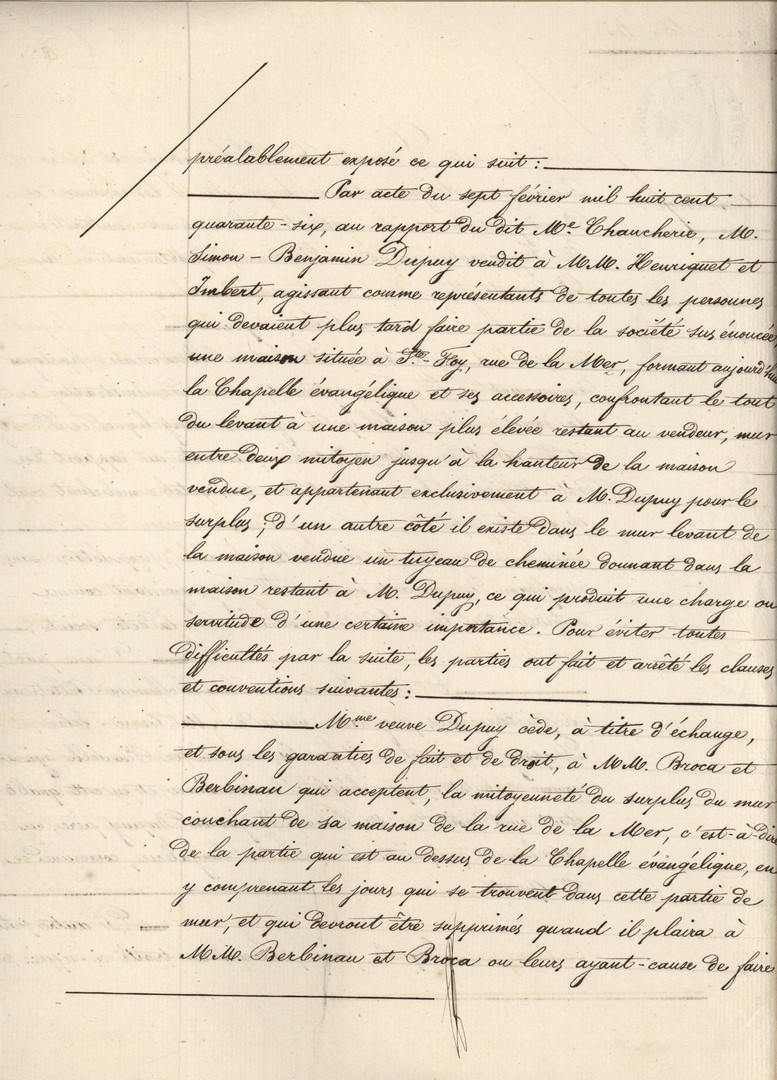 préalablement exposé ce qui suit :
Par acte du sept février mil huit cent
quarante-six, au rapport du dit Me Chaucherie, M.
Simon-Benjamin Dupuy vendit à M.M. Henriquet et
Imbert, agissant comme représentants de toutes les personnes
qui devaient plus tard faire partie de la société sus énoncée
une maison située à Ste-Foy, rue de la Mer, formant aujourd'hui
la Chapelle évangélique et ses accessoires, confrontant le tout
du levant à une maison plus élevée restant au vendeur, mur
entre deux mitoyen jusqu'à la hauteur de la maison
vendue, et appartenant exclusivement à M. Dupuy pour le
surplus ; d'un autre côté il existe dans le mur levant de
la maison vendue un tuyeau de cheminée donnant dans la
maison restant à M. Dupuy, ce qui produit une charge ou
servitude d'une certaine importance. Pour éviter toutes
difficultés par la suite, les parties ont fait et arrêté les clauses
et conventions suivantes :
Mme veuve Dupuy cède, à titre d'échange,
et sous les garanties de fait et de droit, à M.M. Broca et
Berbinau qui acceptent, la mitoyenneté du surplus du mur
couchant de sa maison de la rue de la Mer, c'est-à-dire
de la partie qui est au dessus de la Chapelle évangélique, en
y comprenant les jours qui se trouvent dans cette partie de
mur, et qui devront être supprimés quand il plaira à
M.M. Berbinau et Broca ou leurs ayant-cause de faire